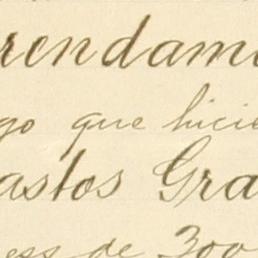 rendami
go que hicie
astos Gra
ess de 300